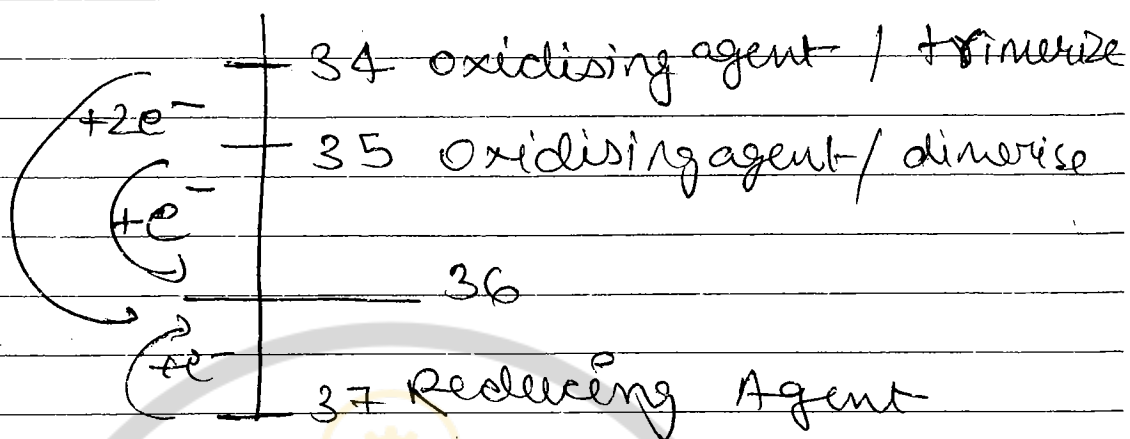 34 oxidising agent / trimerize
+2e⁻
35 Oxidising agent / dimerise
+e⁻
36
+e⁻
37 Reducing Agent